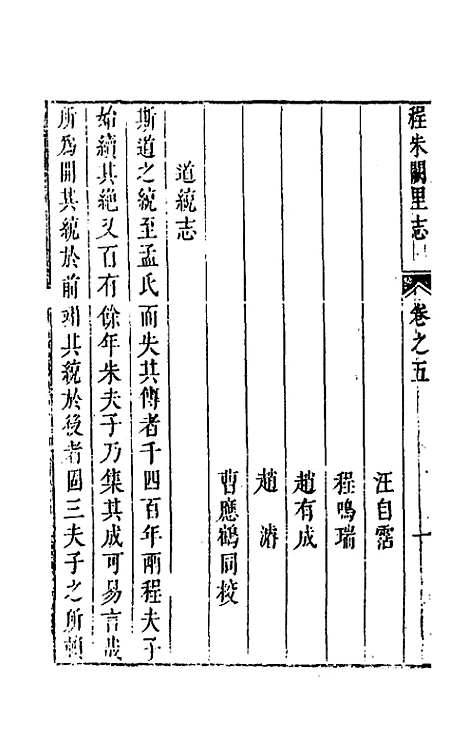 程朱闕里志 卷之五 一
汪自霑
程鳴瑞
趙有成
趙 濬
曹應鶴同校
道統志
斯道之統至孟氏而失其傳者千四百年兩程夫子
始續其絶又百有餘年朱夫子乃集其成可易言哉
所爲開其統於前翊其統於後者固三夫子之所賴